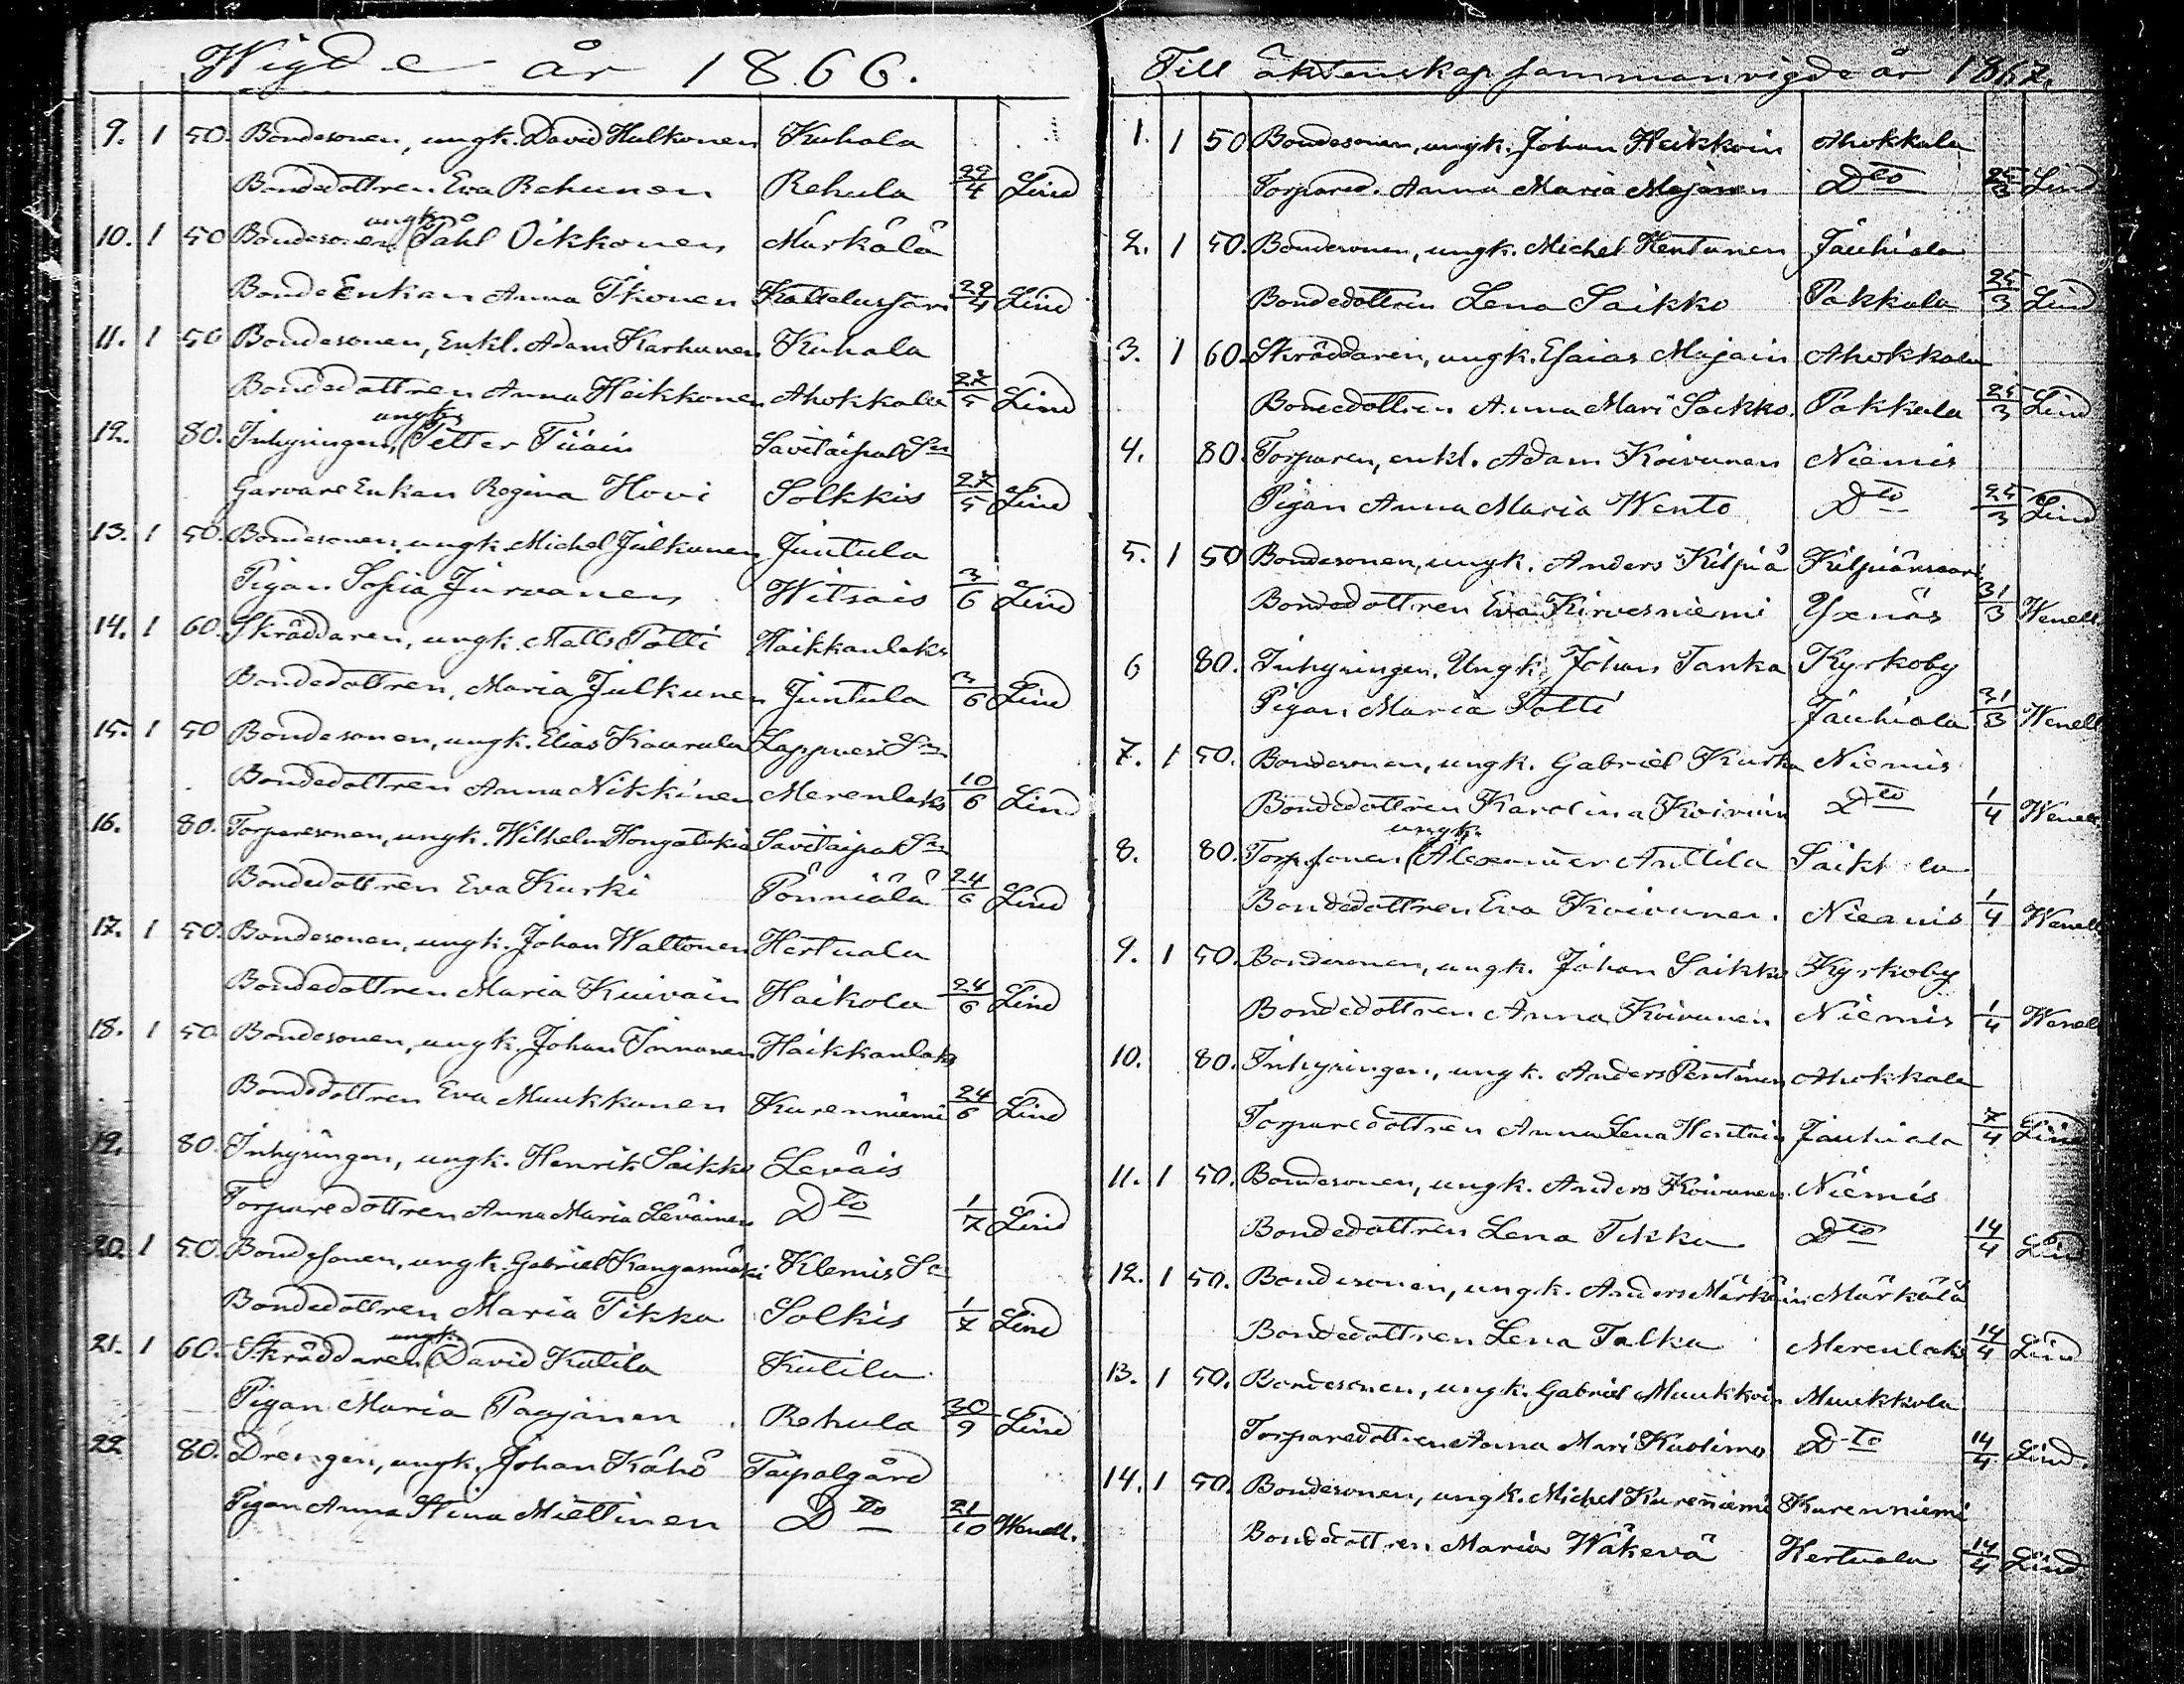 Wigde år 1866.
9. 1 50. Bondesonen, ungk. David Hulkonen Kuhala
Bondedottren Eva Rehunen Rehula 29/4 Lind
ungk.
10. 1 50 Bondesonen, Påhl Oikkonen Märkälä
Bonde Enkan Anna Ikonen Kattelussaari 29/4 Lind
11. 1 50 Bondesonen, Enkl. Adam Karhunen Kuhala
Bondedottren Anna Heikkonen Ahokkala 27/5 Lind
ungk.
12. 80. Inhysingen, Petter Tiiain Savitaipal Sn
Garvare Enkan Regina Hovi Solkkis 27/5 Lind
13. 1 50. Bondesonen, ungk. Michel Julkunen Juntula
Pigan Sofia Jurvanen Witsais 3/6 Lind
14. 1 60. Skräddaren, ungk. Matts Potti Haikkanlaks
Bondedottren, Maria Julkunen Juntula 3/6 Lind
15. 1 50 Bondesonen, ungk. Elias Kaurula Lappvesi Sn
Bondedottren Anna Nikkinen Merenlaks 10/6 Lind
16. 80. Torparesonen, ungk. Wilhelm Hongatukia Savitaipal Sn
Bondedottren Eva Kurki Pönniälä 24/6 Lind
17. 1 50. Bondesonen, ungk. Johan Waltonen Hertuala
Bondedottren Maria Kuivain Haikola 24/6 Lind
18. 1 50. Bondesonen, ungk. Johan Innanen Haikkanlaks
Bondedottren Eva Muukkonen Kurenniemi 24/6 Lind
19. 80. Inhysingen, ungk. Henrik Saikko Leväis
Torparedottren Anna Maria Leväinen Dto 1/7 Lind
20. 1 50. Bondesonen, ungk. Gabriel Kangasmäki Klemis Sn
Bondedottren Maria Tikka Solkis 1/7 Lind
ungk.
21. 1 60. Skräddaren David Kutila Kutila
Pigan Maria Paajanen Rehula 30/9 Lind
22. 80. Drengen, ungk. Johan Kähö Taipalgård
Pigan Anna Stina Miettinen Dto 21/10 Wenell.
Till äktenskap sammanvigde år 1867.
1. 1 50 Bondesonen, ungk. Johan Heikkoin Ahokkala
Torpared. Anna Maria Majänen Dto 25/3 Lind
2. 1 50. Bondesonen, ungk. Michel Hentunen Jauhiala
Bondedottren Lena Saikko Pakkala 25/3 Lind
3. 1 60. Skräddaren, ungk. Esaias Majain Ahokkala
Bondedottren Anna Mari Saikko. Pakkala 25/3 Lind
4. 80. Torparen, enkl. Adam Koivunen Niemis
Pigan Anna Maria Wento Dto 25/3 Lind
5. 1 50 Bondesonen, ungk. Anders Kilpiä Kilpiänsaari
Bondedottren Eva Kirvesniemi Yxnäs 31/3 Wenell
6 80. Inhysingen, Ungk. Johan Tanka Kyrkoby
Pigan Maria Potti Jauhiala 31/3 Wenell
7. 1 50. Bondesonen, ungk. Gabriel Kurka Niemis
Bondedottren Karolina Koivuin Dto 1/4 Wenell
ungk.
8. 80. Torp.sonen Alexander Anttila Saikkola
Bondedottren Eva Koivunen. Niemis 1/4 Wenell
9. 1 50. Bondesonen, ungk. Johan Saikko Kyrkoby
Bondedottren Anna Koivunen Niemis 1/4 Wenell
10. 80. Inhysingen, ungk. Anders Pentinen Ahokkala
Torparedottren Anna Lena Hentuin Jauhiala 7/4 Lind
11. 1 50. Bondesonen, ungk. Anders Koivunen Niemis
Bondedottren Lena Tikka Dto 14/4 Lind
12. 1 50. Bondesonen, ungk. Anders Märkäin Märkälä
Bondedottren Lena Talka Merenlaks 14/4 Lind
13. 1 50. Bondesonen, ungk. Gabriel Muukkoin Muukkola
Torparedottren Anna Mari Kuolimo Dto 14/4 Lind.
14. 1 50. Bondesonen, ungk. Michel Kurenniemi Kurenniemi
Bondedottren Maria Wäkevä Hertuala 14/4 Lind